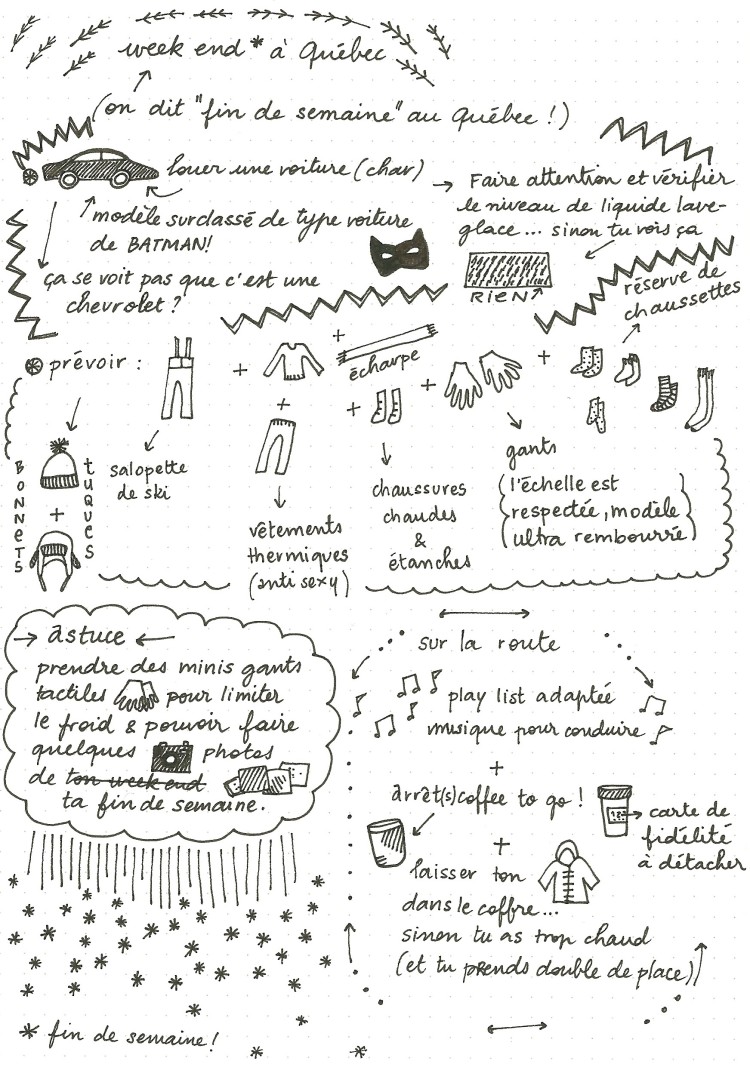 week end * à Québec
(on dit "fin de semaine" au Québec !)
louer une voiture (char)
modèle surclassé de type voiture
de BATMAN!
ça se voit pas que c'est une
chevrolet ?
→ Faire attention et vérifier
le niveau de liquide lave-
glace... sinon tu vois ça
RIEN
réserve de
chaussettes
prévoir :
+
+
écharpe
+
+
+
+
BONNETS
+
TUQUES
salopette
de ski
vêtements
thermiques
(anti sexy)
chaussures
chaudes
&
étanches
gants
(l'échelle est
respectée, modèle
ultra rembourré)
→ astuce ←
prendre des minis gants
tactiles pour limiter
le froid & pouvoir faire
quelques photos
de ton week end
ta fin de semaine.
* fin de semaine !
sur la route
play list adaptée
musique pour conduire
+
arrêt(s) coffee to go !
→ carte de
fidélité
à détacher
+
laisser ton
dans le coffre...
sinon tu as trop chaud
(et tu prends double de place)